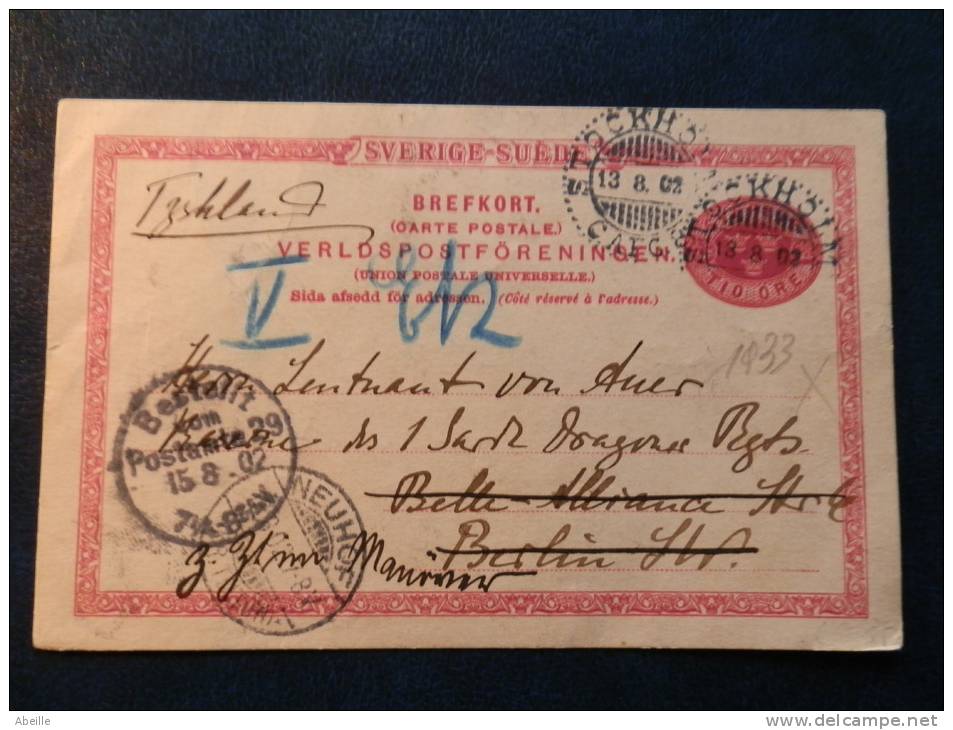 SVERIGE-SUEDE
BREFKORT.
(CARTE POSTALE.)
VERLDSPOSTFÖRENINGEN.
(UNION POSTALE UNIVERSELLE.)
Sida afsedd för adressen. (Côté réservé à l'adresse.)
Tyskland
STOCKHOLM
13 8. 02
STOCKHOLM
13 8. 02
10 ÖRE
V
1933
Herrn Leutnant von Auer
Kaserne des 1 Gard Dragoner Regts
Belle-Alliance Str 6
Berlin SW.
z Zt im Manöver
Bestellt
vom
Postamte 29
15. 8. 02
7¼-8¼ V.
NEUHOF
Abeille
www.delcampe.net